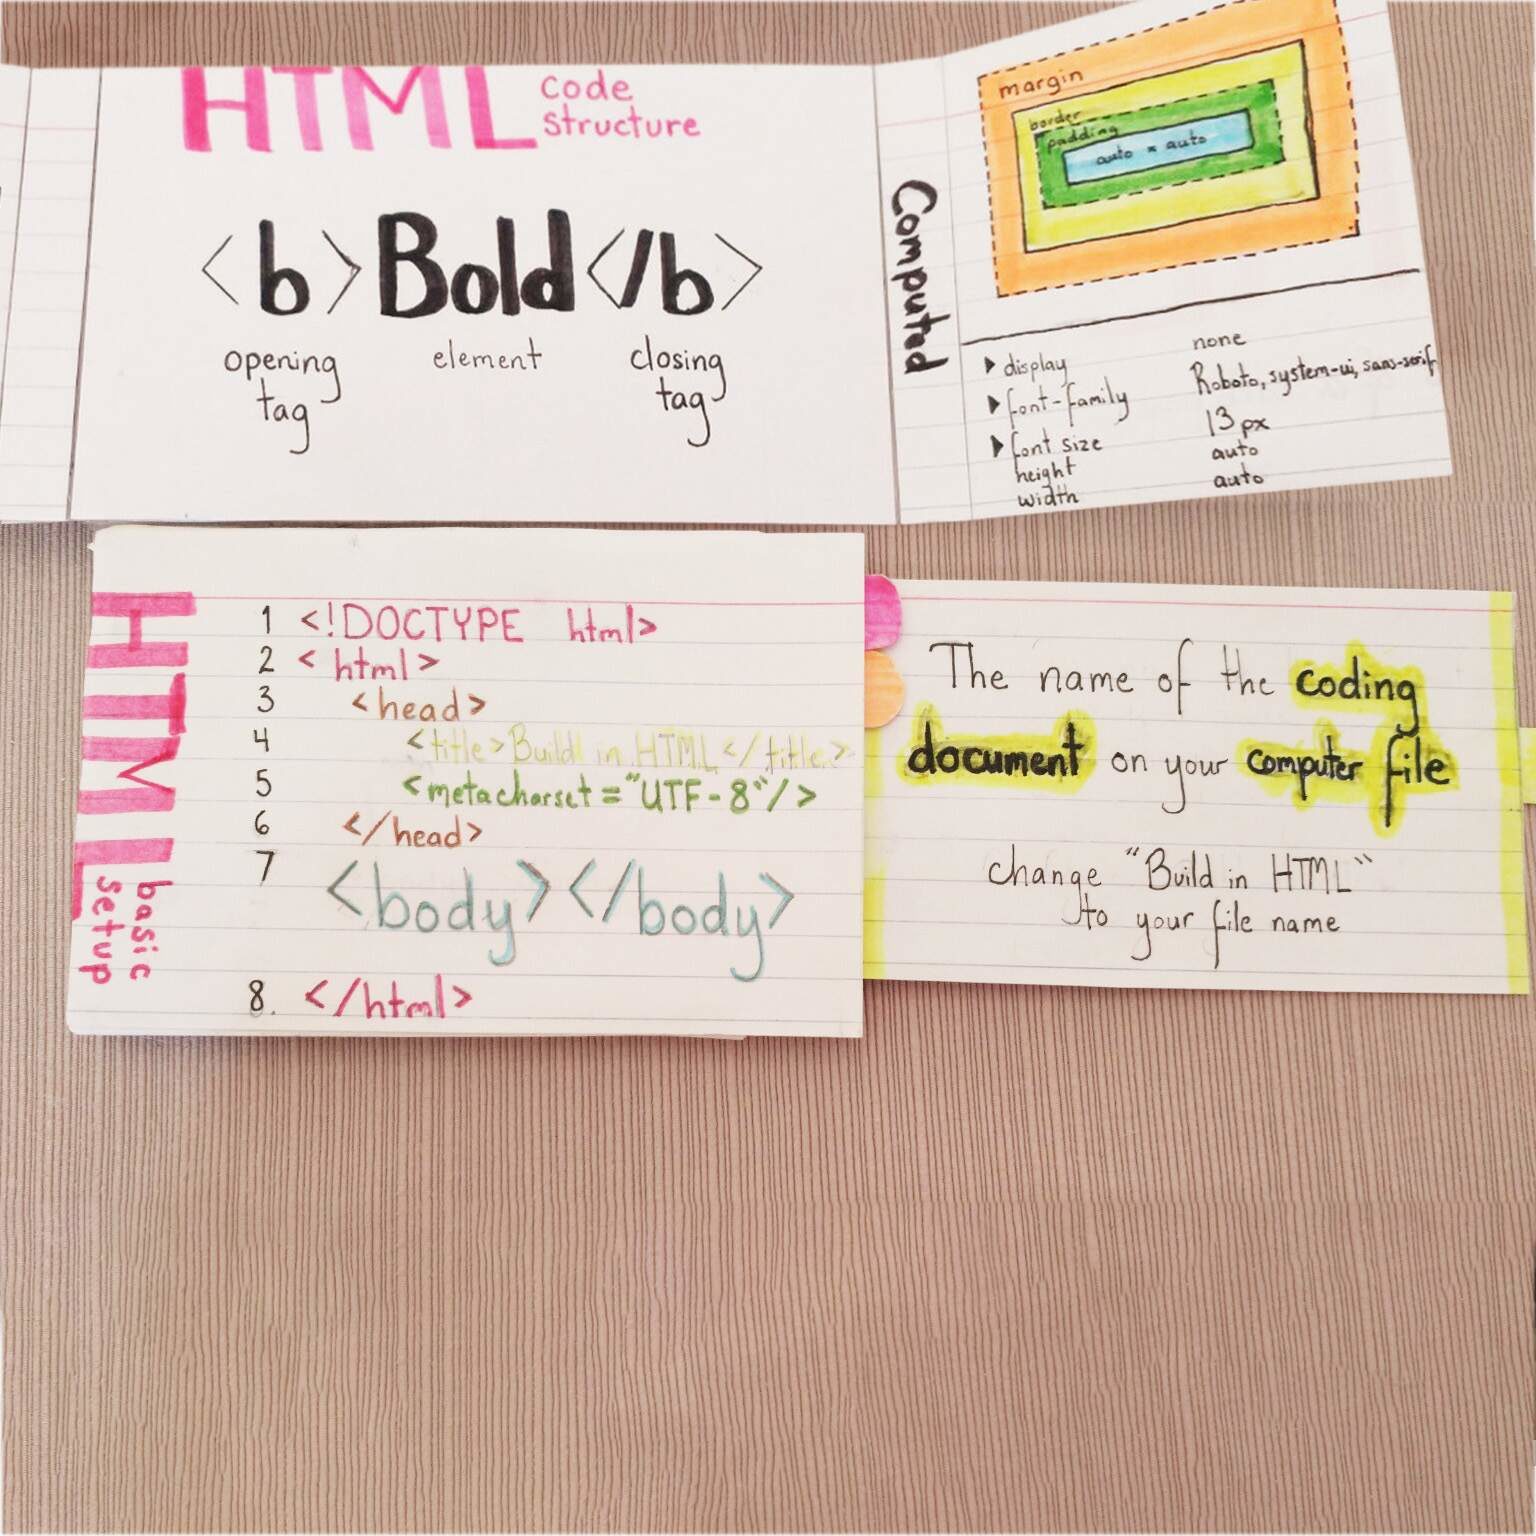 HTML code
structure
<b>Bold</b>
opening
tag
element
closing
tag
Computed
margin
border
padding
auto × auto
display none
font-family Roboto, system-ui, sans-serif
font size 13px
height auto
width auto
HTML
basic
setup
1 <!DOCTYPE html>
2 <html>
3 <head>
4 <title>Build in HTML</title>
5 <metacharset="UTF-8"/>
6 </head>
7 <body></body>
8. </html>
The name of the coding
document on your computer file
change "Build in HTML"
to your file name